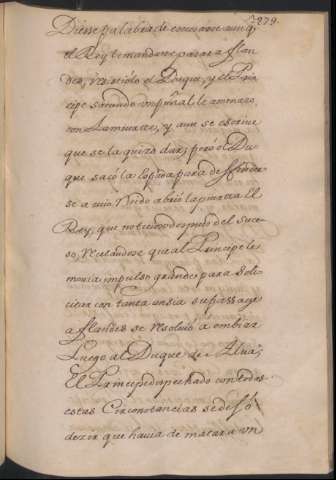 279.
Diesse palabra de estorvarse aunq.
el Rey le mandasse pasar a flan
des, resistiolo el Duque, y el Prin
cipe sacando un puñal le amenazo
con Lamuerte, y aun se escrive
que se la quizo dar; pero el Du
que sacó la espada para defenderse
a cuio Ruido abrió la puerta el
Rey, que noticioso despues del suce
so, Recelandose que al Principe le
movia impulso grande para soli
citar con tanta ansia su passage
a flandes se resolvió a embiar
Luego al Duque de Alva;
El Principe despechado con todas
estas Circunstancias se desfó
dezir que havia de matar a un